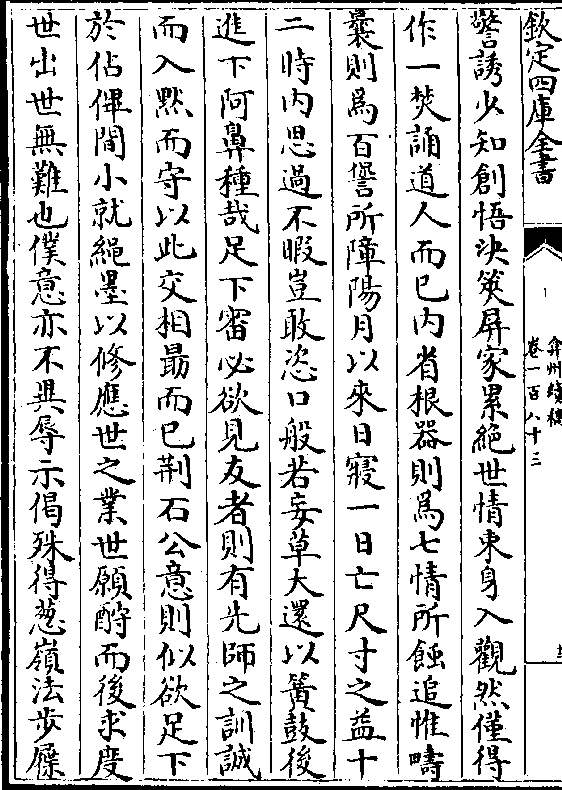 欽定四庫全書
弇州續稿
卷一百八十三
警誘少知創悟決筴屏家累絶世情束身入觀然僅得
作一焚誦道人而已内省根器則為七情所蝕追惟疇
曩則為百諐所障陽月以來日寢一日亡尺寸之益十
二時内思過不暇豈敢恣口般若妄草大還以簧鼓後
進下阿鼻種哉足下審必欲見友者則有先師之訓誠
而入黙而守以此交相朂而已荆石公意則似欲足下
於佔俾間小就繩墨以修應世之業世願酧而後求度
世出世無難也僕意亦不異辱示偈殊得葱嶺法步屧